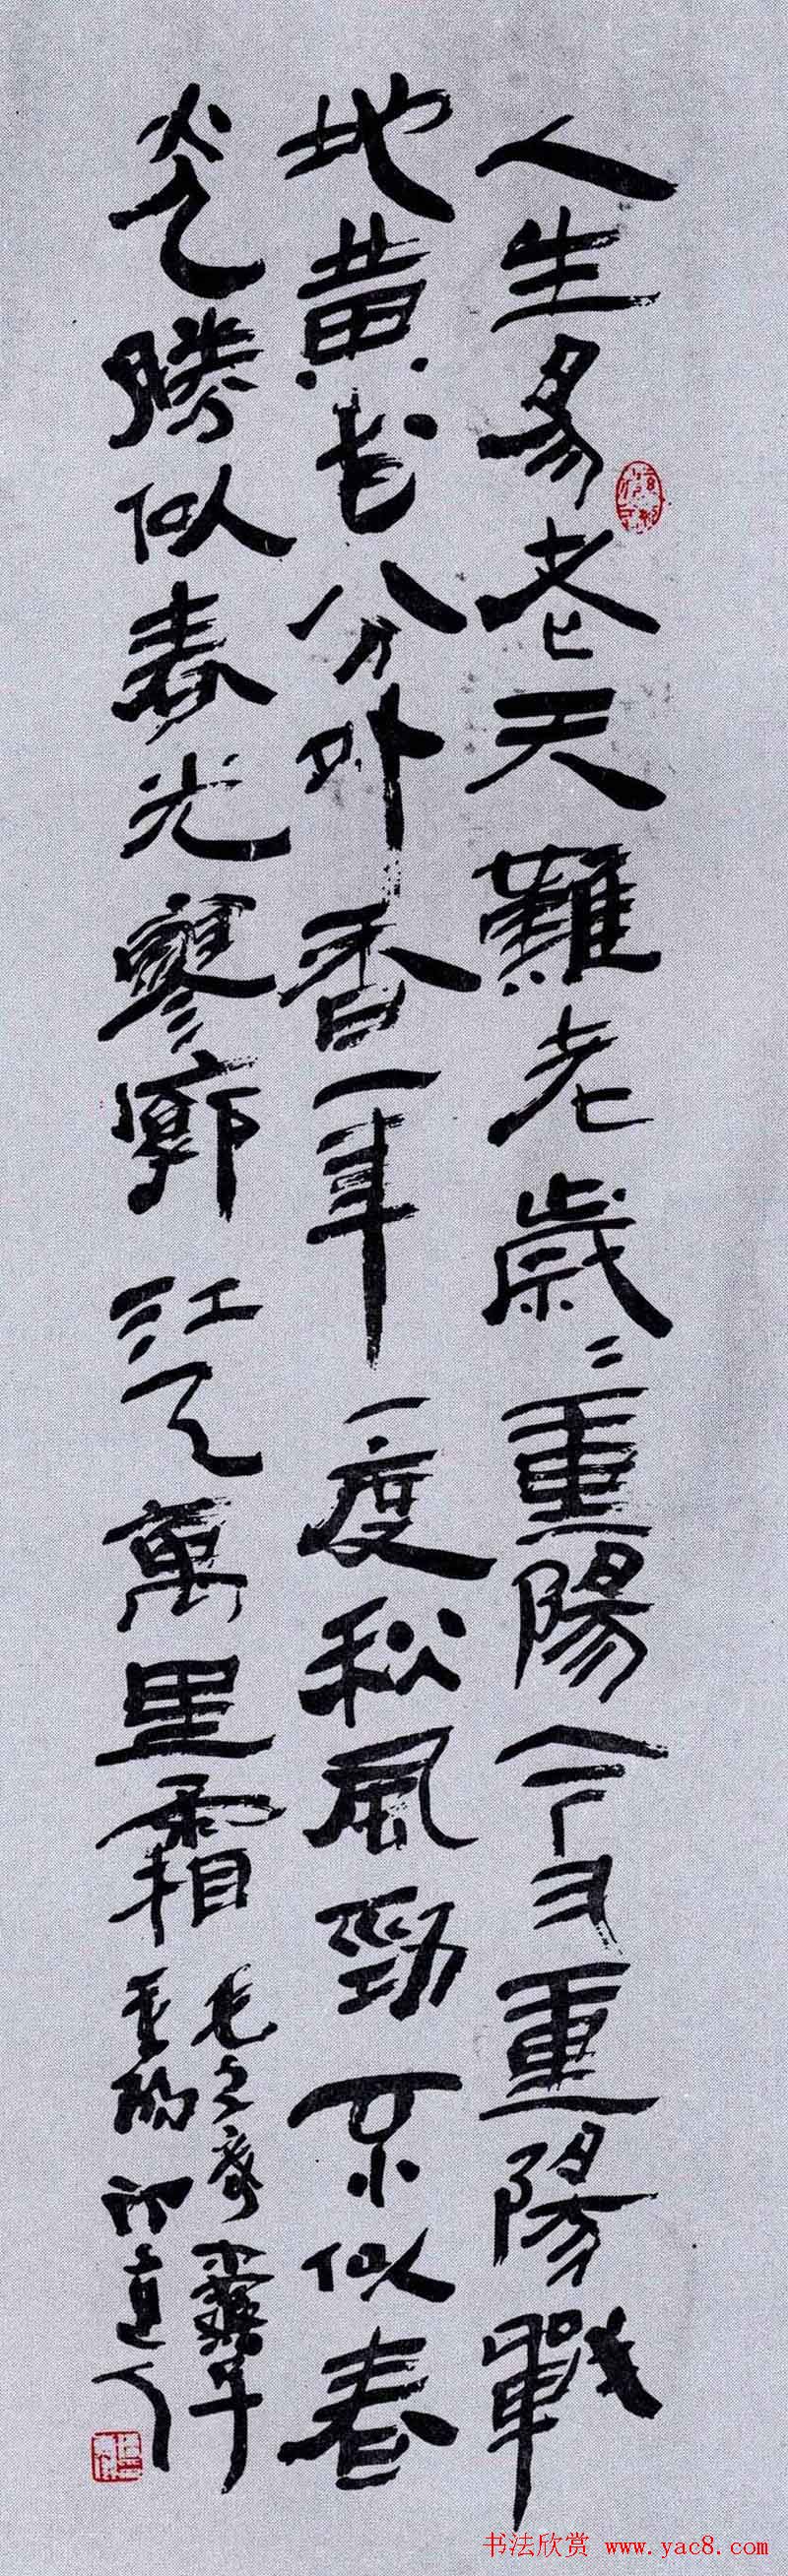 人生易老天難老歲〻重陽今又重陽戰
地黄花分外香一年一度秋風勁不似春
光勝似春光寥廓江天萬里霜
毛主席
重陽
书法欣赏 www.yac8.com